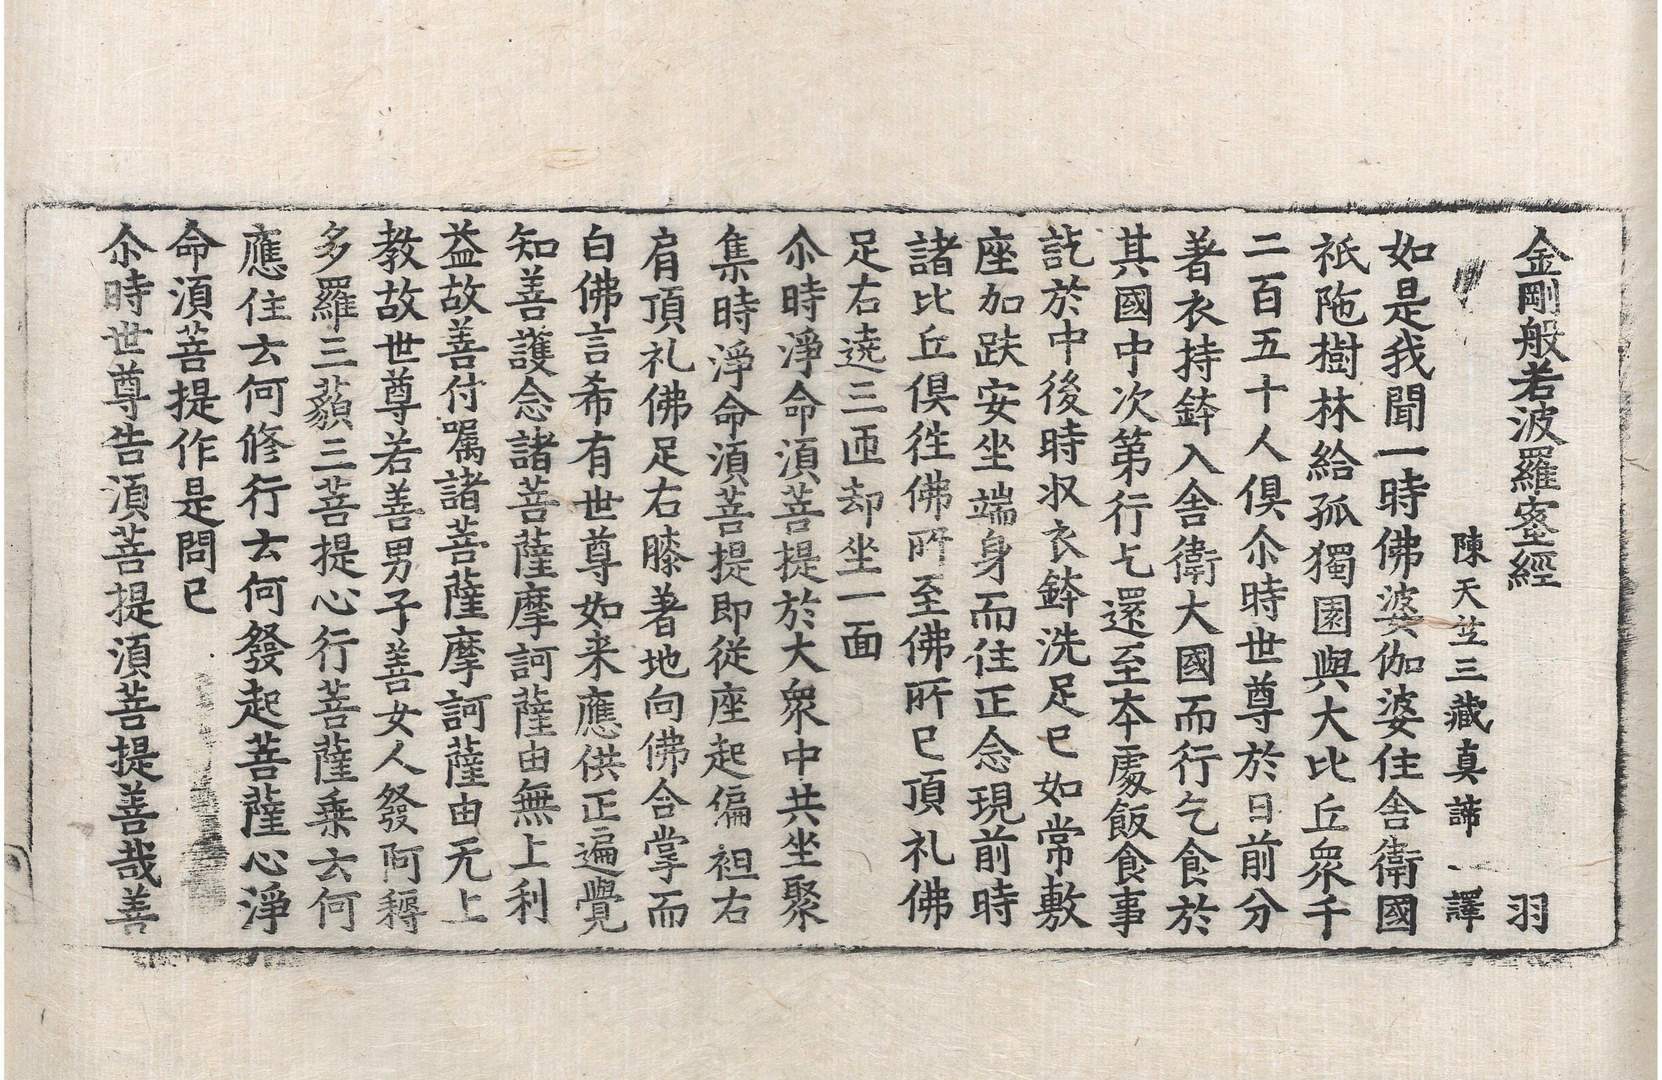 金剛般若波羅蜜經 羽
陳天竺三藏真諦 譯
如是我聞一時佛婆伽婆住舍衛國
祇陁樹林給孤獨園與大比丘衆千
二百五十人俱尒時世尊於日前分
著衣持鉢入舍衛大國而行乞食於
其國中次第行乞還至夲處飯食事
訖於中後時收衣鉢洗足已如常敷
座加趺安坐端身而住正念現前時
諸比丘俱徃佛所至佛所已頂礼佛
足右遶三匝却坐一面
尒時淨命湏菩提於大衆中共坐聚
集時淨命湏菩提即從座起偏袒右
肩頂礼佛足右膝著地向佛合掌而
白佛言希有世尊如来應供正遍覺
知善護念諸菩薩摩訶薩由無上利
益故善付嘱諸菩薩摩訶薩由无上
教故世尊若善男子善女人發阿耨
多羅三藐三菩提心行菩薩乗云何
應住云何修行云何發起菩薩心淨
命湏菩提作是問已
尒時世尊告湏菩提湏菩提善哉善